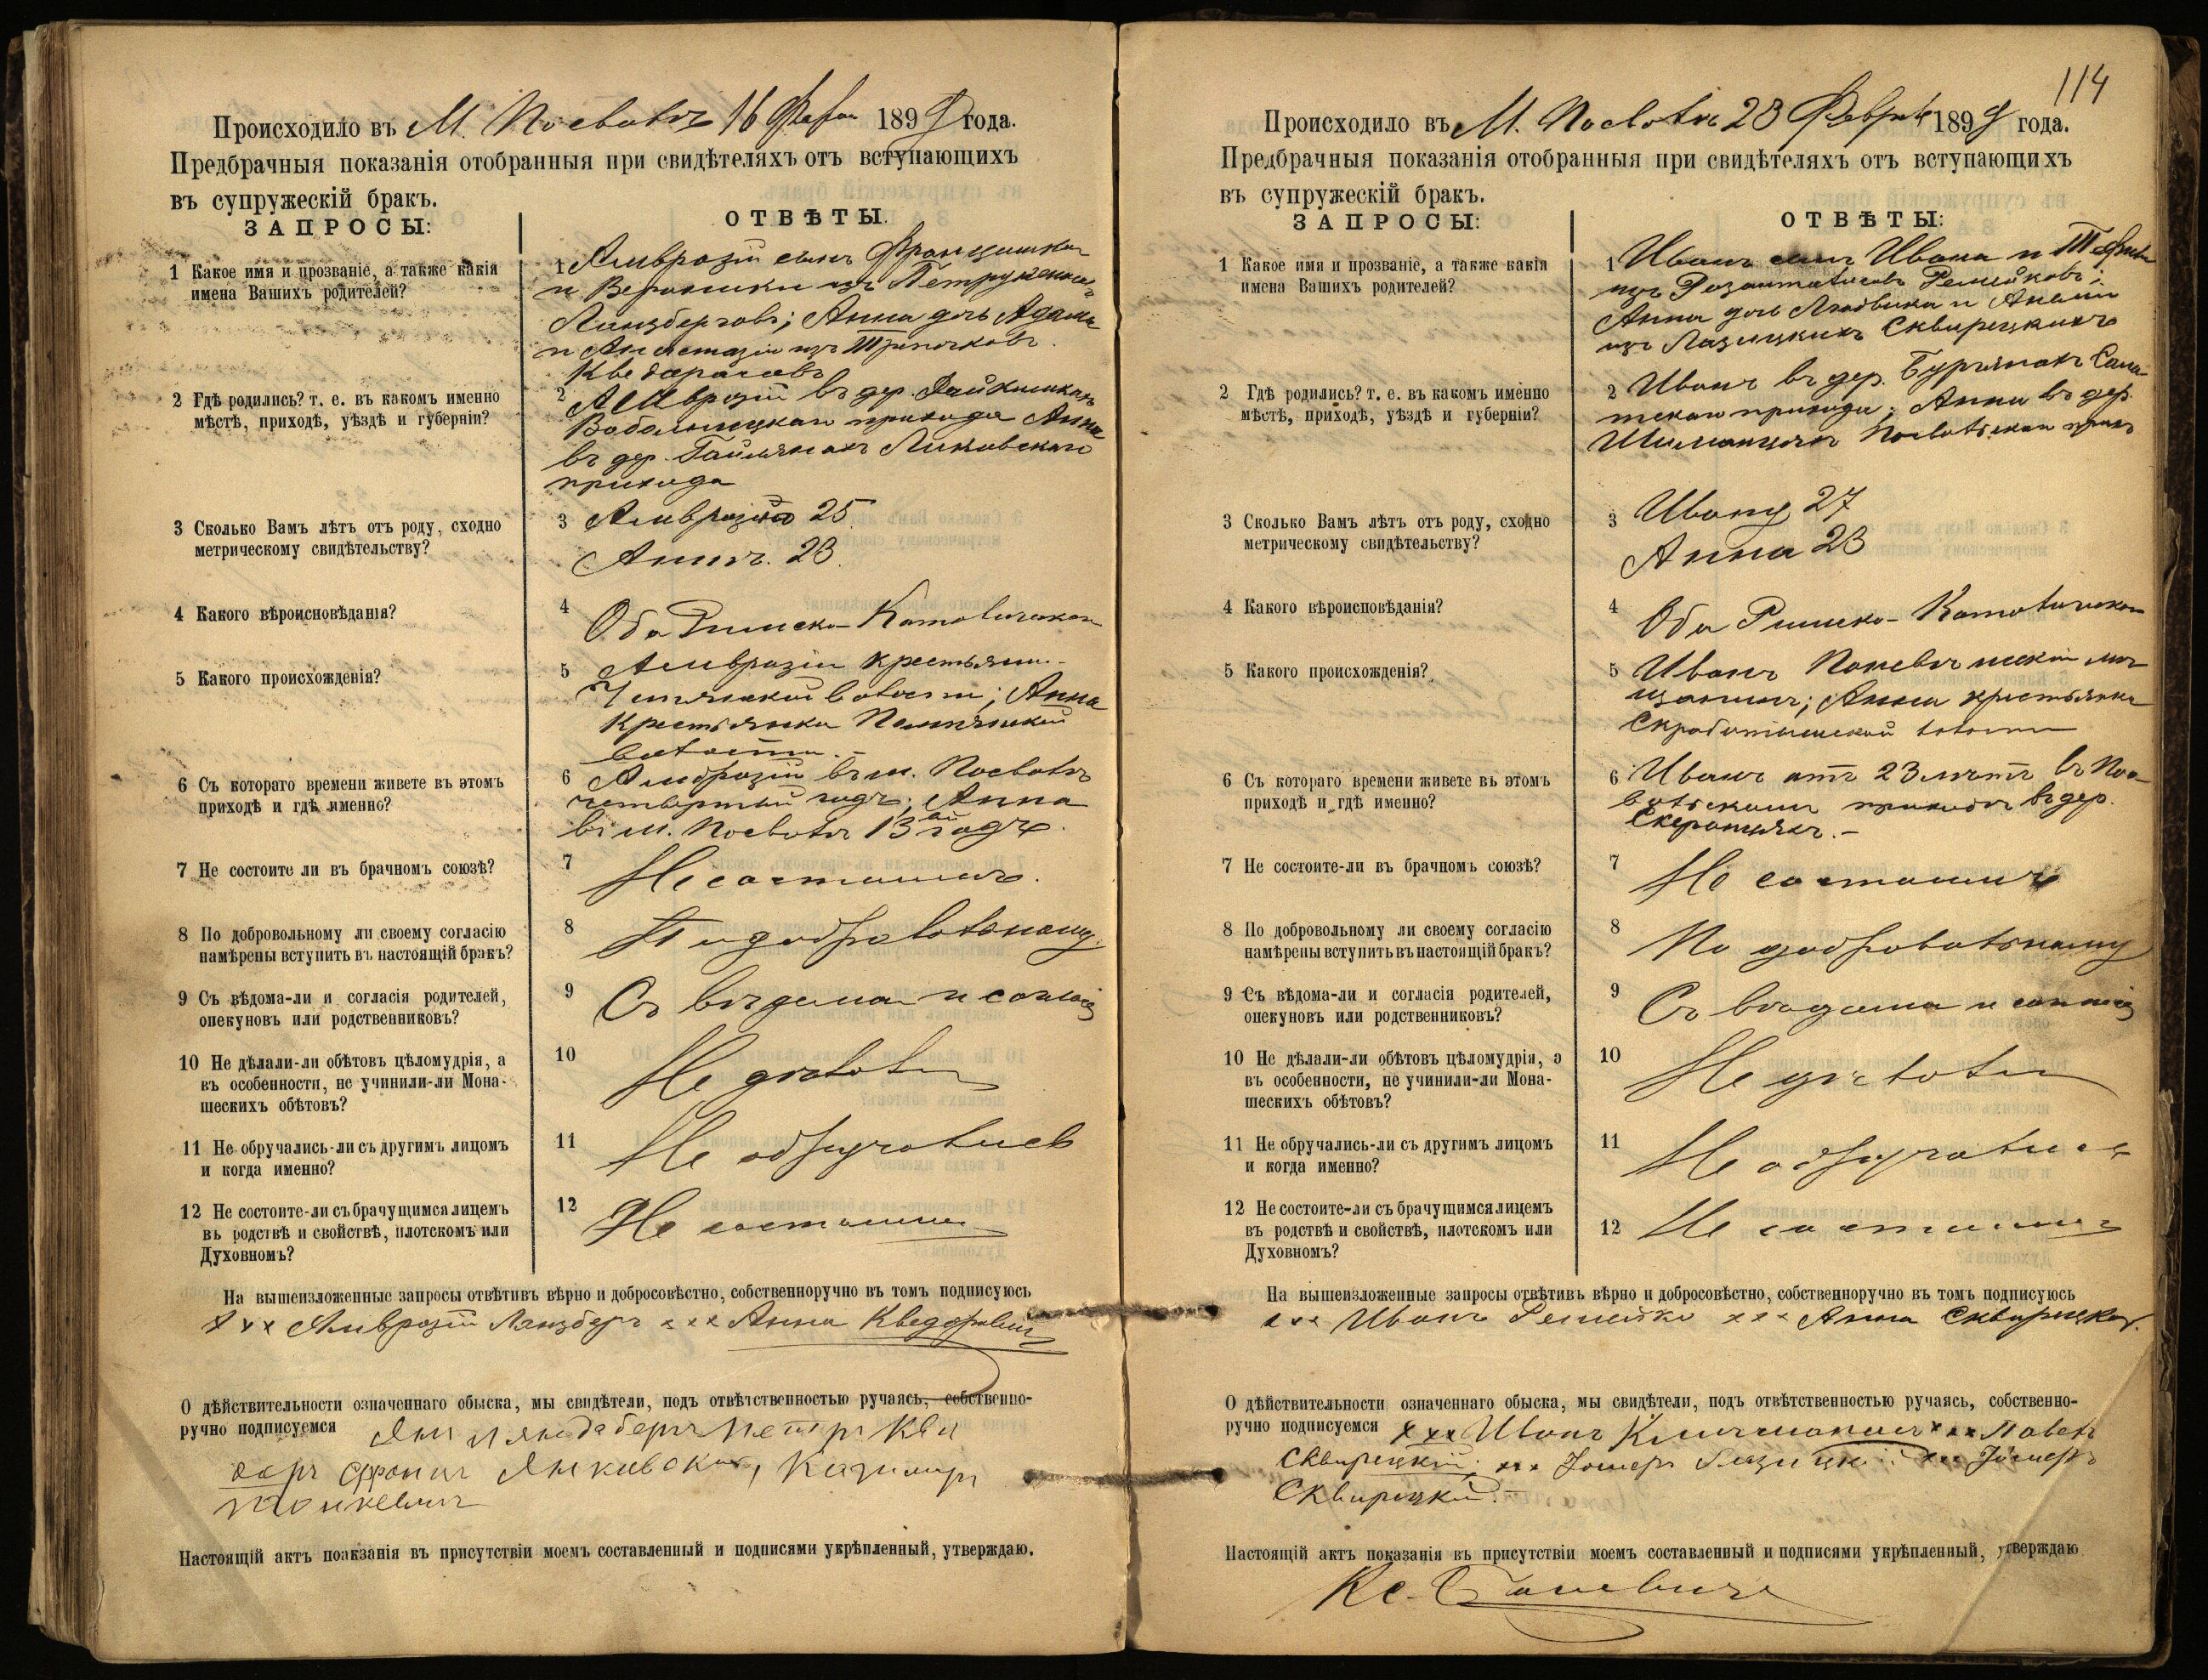 Происходило въ М. Посволь 16 Февр 1899 года.
Предбрачныя показанія отобранныя при свидѣтеляхъ отъ вступающихъ
въ супружескій бракъ.
ЗАПРОСЫ:
ОТВѢТЫ.
1 Какое имя и прозваніе, а также какія
имена Вашихъ родителей?
1 Амврозій сынъ Францишка
и Вероники изъ
Анна дочь Адама
и Анастазіи изъ
2 Гдѣ родились? т. е. въ какомъ именно
мѣстѣ, приходѣ, уѣздѣ и губерніи?
2 Амврозій въ дер.
прихода Анна
въ дер.
прихода
3 Сколько Вамъ лѣтъ отъ роду, сходно
метрическому свидѣтельству?
3 Амврозій 25
Анна. 23.
4 Какого вѣроисповѣданія?
4 Оба Римско-Католическаго
5 Какого происхожденія?
5 Амврозій крестьянин
волости; Анна
крестьянка
волости.-
6 Съ котораго времени живете въ этомъ
приходѣ и гдѣ именно?
6 Амброзій въ м. Посволь
четвертый годъ; Анна
въ м. Посволь 13ый годъ.
7 Не состоите ли въ брачномъ союзѣ?
7 Не состоимъ.
8 По добровольному ли своему согласію
намѣрены вступить въ настоящій бракъ?
8 По добровольному.
9 Съ вѣдома-ли и согласія родителей,
опекуновъ или родственниковъ?
9 Съ вѣдома и согласія
10 Не дѣлали-ли обѣтовъ цѣломудрія, а
въ особенности, не учинили-ли Мона-
шескихъ обѣтовъ?
10 Не дѣлали
11 Не обручались-ли съ другимъ лицомъ
и когда именно?
11 Не обручались
12 Не состоите-ли съ брачущимся лицемъ
въ родствѣ и свойствѣ, плотскомъ или
Духовномъ?
12 Не состоимъ
На вышеизложенные запросы отвѣтивъ вѣрно и добросовѣстно, собственноручно въ томъ подписуюсь
х х х Амврозій Лянзбергъ х х х Анна
О дѣйствительности означеннаго обыска, мы свидѣтели, подъ отвѣтственностью ручаясь, собственно-
ручно подписуемся Янъ Петръ
Янковскій, Казимиръ
Настоящій актъ поакзанія въ присутствіи моемъ составленный и подписями укрѣпленный, утверждаю.
114
Происходило въ М. Посволь 23 Февраля 1899 года.
Предбрачныя показанія отобранныя при свидѣтеляхъ отъ вступающихъ
въ супружескій бракъ.
ЗАПРОСЫ:
ОТВѢТЫ:
1 Какое имя и прозваніе, а также какія
имена Вашихъ родителей?
1 Иванъ сынъ Ивана и
изъ
Анна дочь Людвика и
изъ Лазицкихъ Сквирецкихъ
2 Гдѣ родились? т. е. въ какомъ именно
мѣстѣ, приходѣ, уѣздѣ и губерніи?
2 Иванъ въ дер.
прихода; Анна въ дер.
3 Сколько Вамъ лѣтъ отъ роду, сходно
метрическому свидѣтельству?
3 Ивану 27
Анна 23
4 Какого вѣроисповѣданія?
4 Оба Римско-Католическаго
5 Какого происхожденія?
5 Иванъ мѣ-
щанинъ; Анна крестьянка
волости
6 Съ котораго времени живете въ этомъ
приходѣ и гдѣ именно?
6 Иванъ отъ 23 лѣтъ въ Пос-
вольскомъ приходѣ въ дер.
7 Не состоите-ли въ брачномъ союзѣ?
7 Не состоимъ
8 По добровольному ли своему согласію
намѣрены вступить въ настоящій бракъ?
8 По добровольному
9 Съ вѣдома-ли и согласія родителей,
опекуновъ или родственниковъ?
9 Съ вѣдома и согласія
10 Не дѣлали-ли обѣтовъ цѣломудрія, э
въ особенности, не учинили-ли Мона-
шескихъ обѣтовъ?
10 Не дѣлали
11 Не обручались-ли съ другимъ лицомъ
и когда именно?
11 Не обручались
12 Не состоите-ли съ брачущимся лицемъ
въ родствѣ и свойствѣ, плотскомъ или
Духовномъ?
12 Не состоимъ
На вышеизложенные запросы отвѣтивъ вѣрно и добросовѣстно, собственноручно въ томъ подписуюсь
х х х Иванъ х х х Анна Сквирецкая.
О дѣйствительности означеннаго обыска, мы свидѣтели, подъ отвѣтственностью ручаясь, собственно-
ручно подписуемся х х х Иванъ х х х Павелъ
Сквирецкій; х х х
Сквирецкій.-
Настоящій актъ показанія въ присутствіи моемъ составленный и подписями укрѣпленный, утверждаю
Кс.